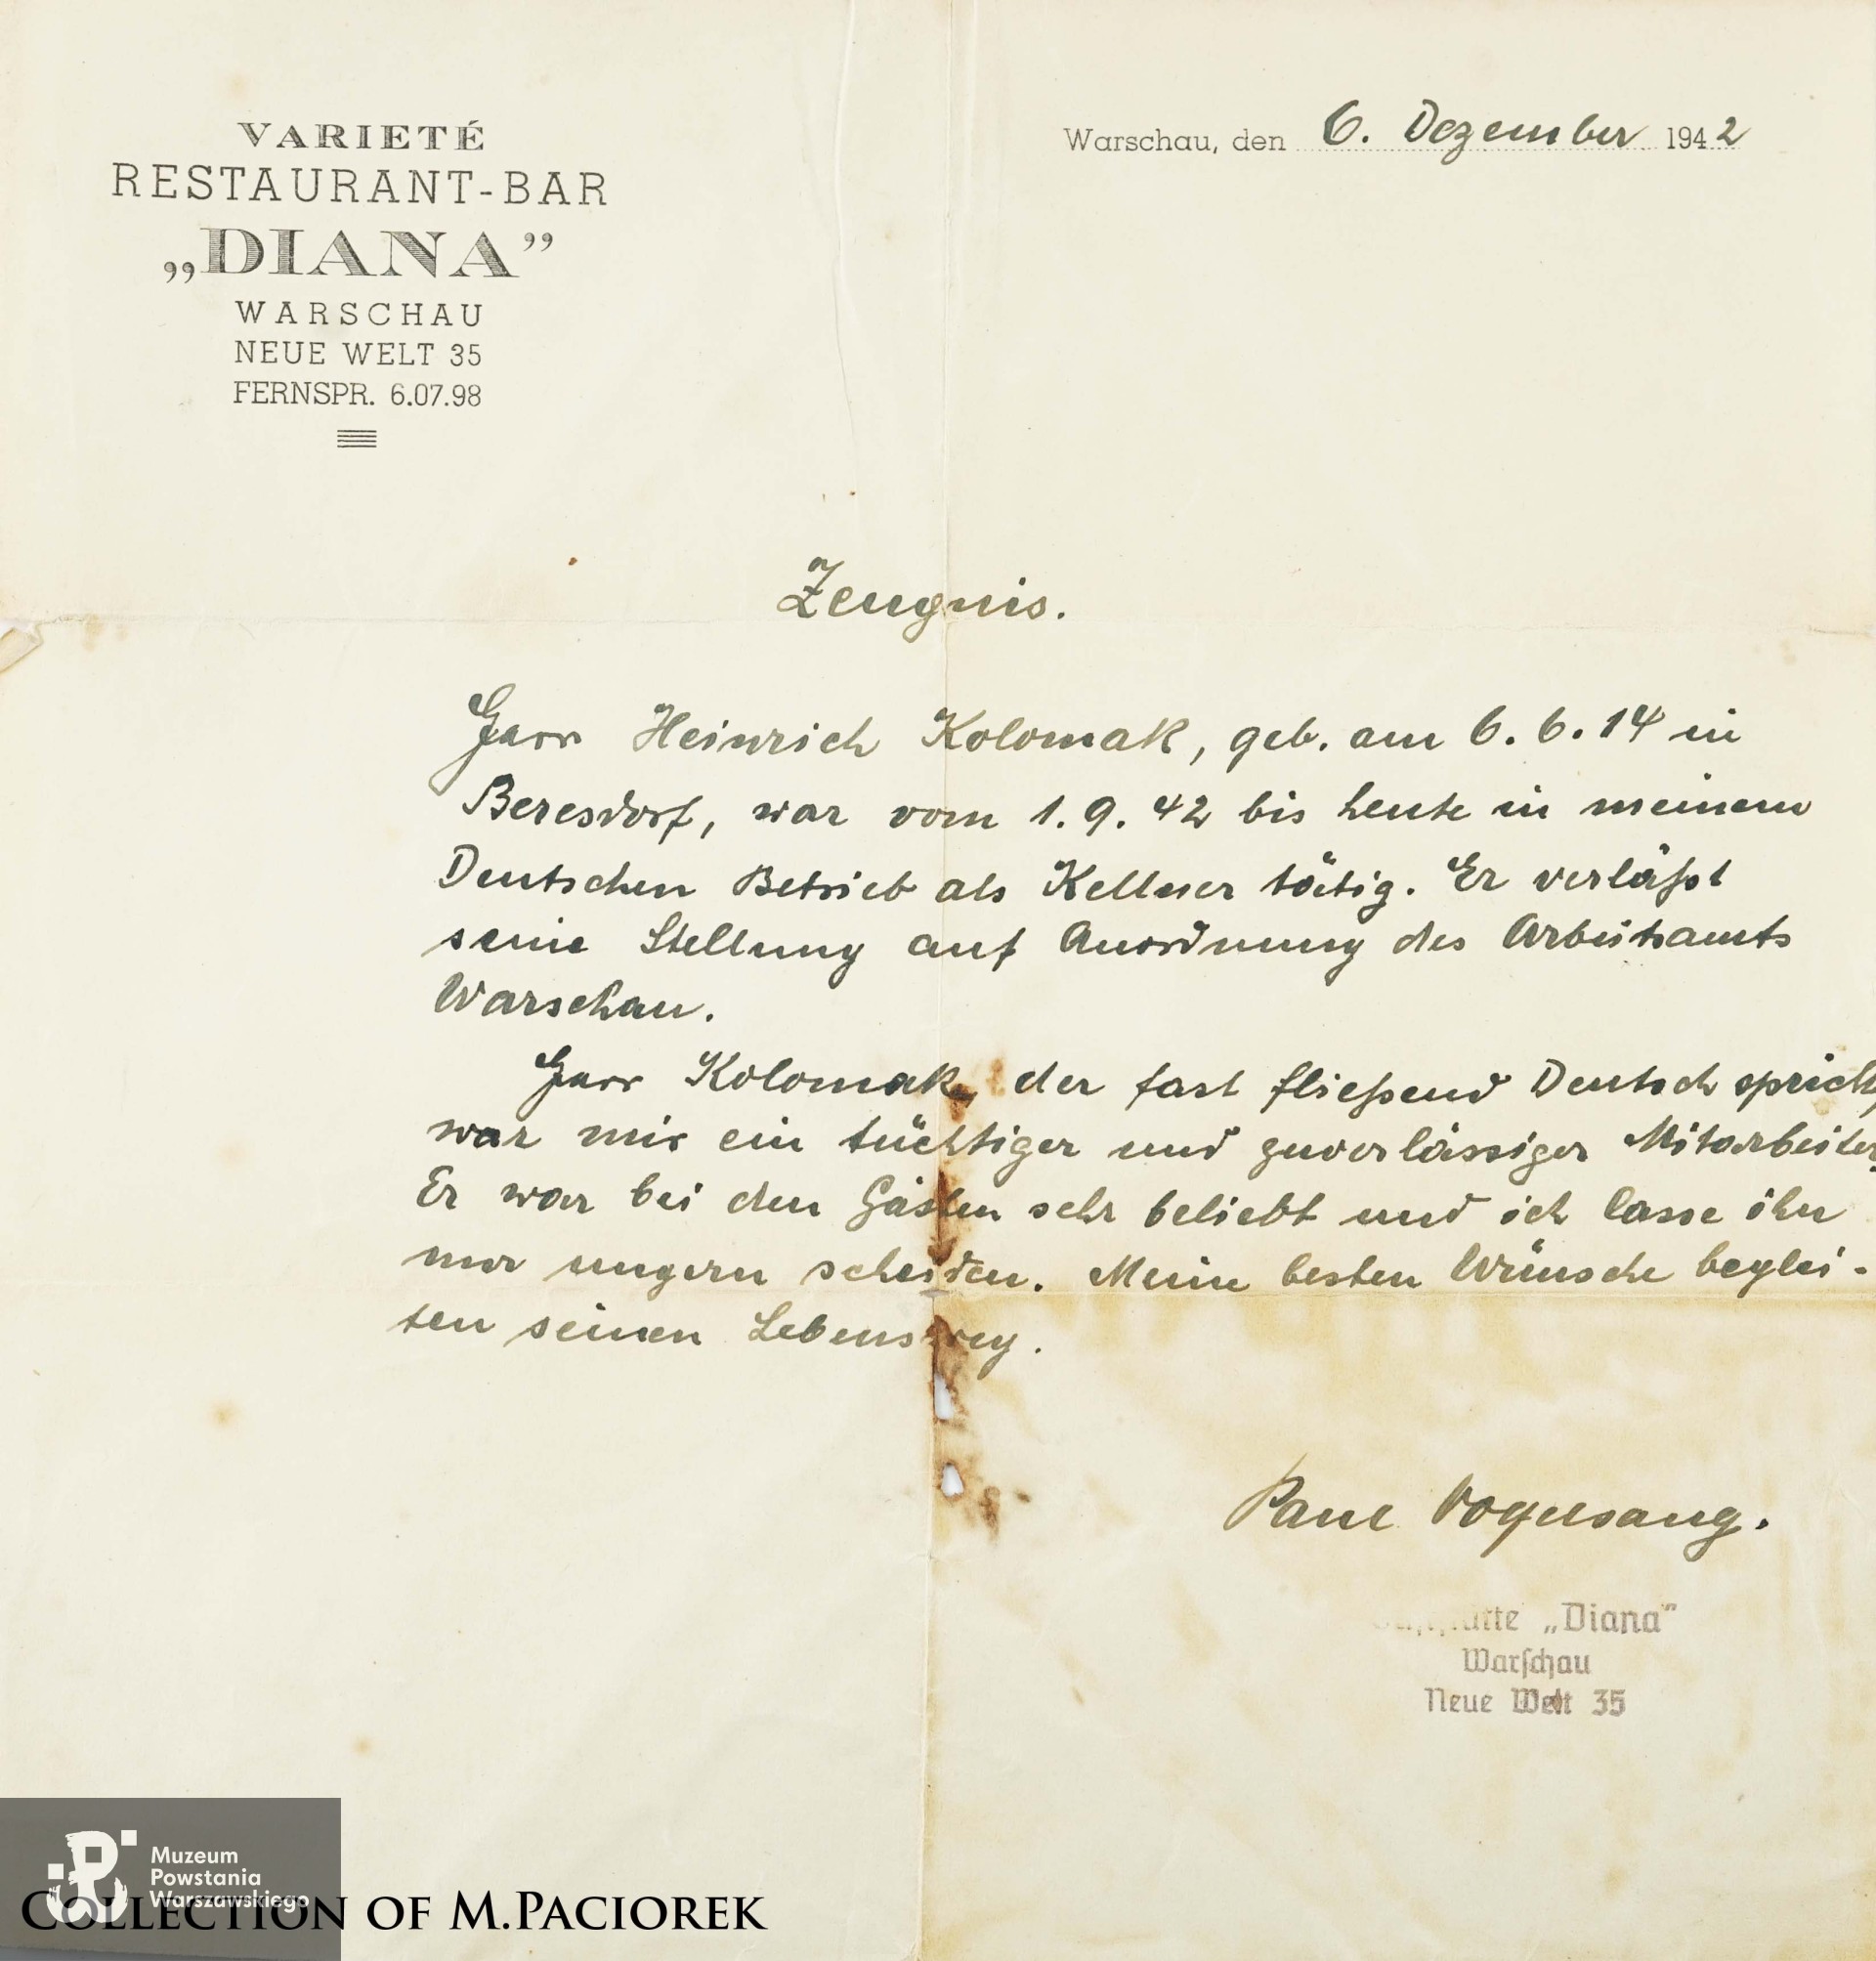 VARIETÉ
RESTAURANT-BAR
„DIANA”
WARSCHAU
NEUE WELT 35
FERNSPR. 6.07.98
Warschau, den 6. Dezember 1942
Zeugnis.
Herr Heinrich Kolomak, geb. am 6.6.14 in
Beresdorf, war vom 1.9.42 bis heute in meinem
Deutschen Betrieb als Kellner tätig. Er verläßt
seine Stellung auf Anordnung des Arbeitsamts
Warschau.
Herr Kolomak, der fast fließend Deutsch spricht,
war mir ein tüchtiger und zuverlässiger Mitarbeiter.
Er war bei den Gästen sehr beliebt und ich lasse ihn
nur ungern scheiden. Meine besten Wünsche beglei-
ten seinen Lebensweg.
Paul Vogelsang.
„Diana“
Warschau
Neue Welt 35
Muzeum
Powstania
Warszawskiego
COLLECTION OF M.PACIOREK